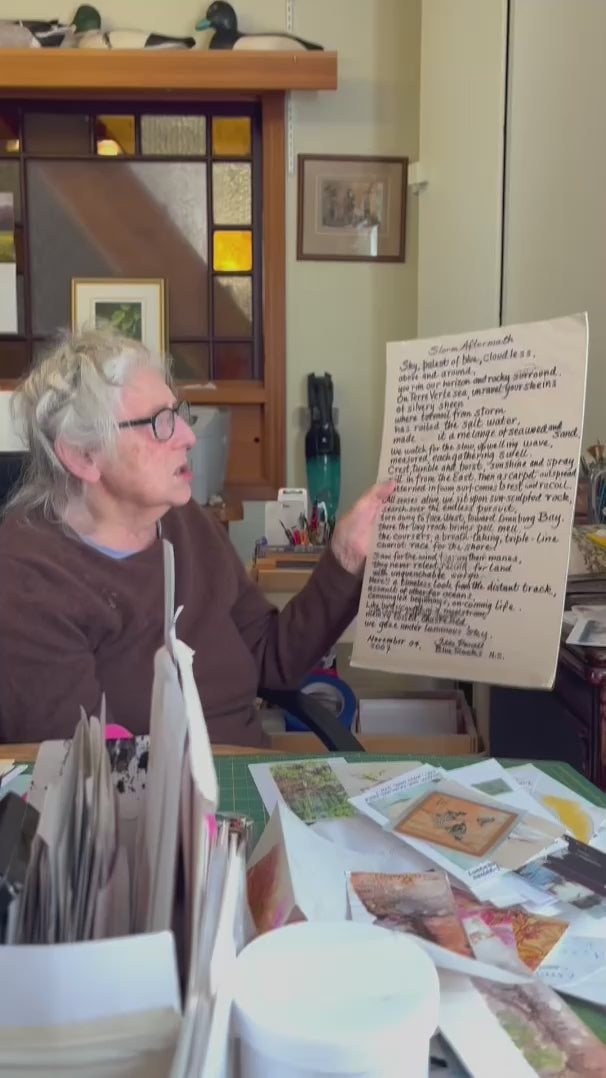 Storm Aftermath
Sky, palest of blue, cloudless,
above and around,
you rim our horizon and rocky surround.
On Terre Verte sea, unravel your skeins
of silvery sheen
where turmoil from storm
has roiled the salt water,
made it a melange of seaweed and sand.
We watch for the slow, swelling wave,
measured, each gathering swell.
Crest, tumble and twist, sunshine and spray
in from the East, then a carpet outspread
from surf comes to rest and recoil.
All senses alive, we sit upon sun-sculpted rock,
search over the endless pursuit,
turn away to face West, toward Lunenburg Bay.
There the bay rock brings pell mell
the coursers, a breath-taking, triple-line
chariot race for the shore!
the wind their manes,
they never relent, racing for land
with unquenchable
Here's a timeless look from the distant track,
of other far oceans,
beginnings, on-coming life.
Like
we gaze under luminous sky.
November 04,
2007
Blue Rocks N.S.